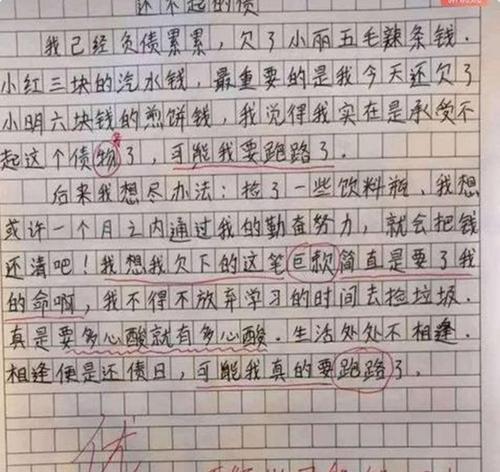 还不起的债
我已经负债累累，欠了小丽五毛辣条钱．
小红三块的汽水钱，最重要的是我今天还欠了
小明六块钱的煎饼钱，我觉得我实在是承受不
起这个债物了，可能我要跑路了．
后来我想尽办法：捡了一些饮料瓶、我想
或许一个月之内通过我的勤奋努力，就会把钱
还清吧！我想我欠下的这笔巨款简直是要了我
的命啊，我不得不放弃学习的时间去捡垃圾．
真是要多心酸就有多心酸．生活处处不相逢．
相逢便是还债日，可能我真的要跑路了．
优